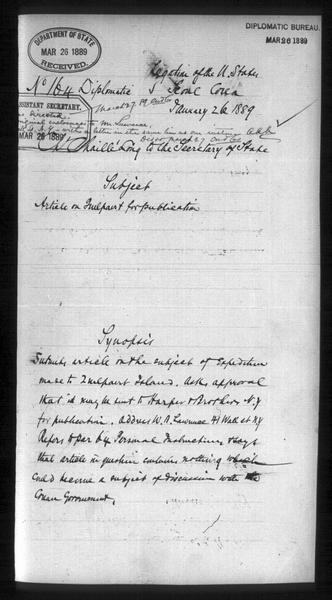 DIPLOMATIC BUREAU.
MAR 26 1889
DEPARTMENT OF STATE
MAR 26 1889
RECEIVED.
Legation of the U. States
No 164 Diplomatic Seoul Corea
January 26 1889
ASSISTANT SECRETARY.
MAR 26 1889
Chaillé Long to the Secretary of State
Subject
Article on Quelpaert for publication
Synopsis
Submits article on the subject of Expedition
made to Quelpaert Island. Asks approval
that it may be sent to Harper & Brothers N.Y.
for publication. Address W. B. Lawrence 41 Wall st N.Y
Refers to par 64 Personal Instructions & says
that article in question contains nothing which
could become a subject of discussion with the
Corean Government.